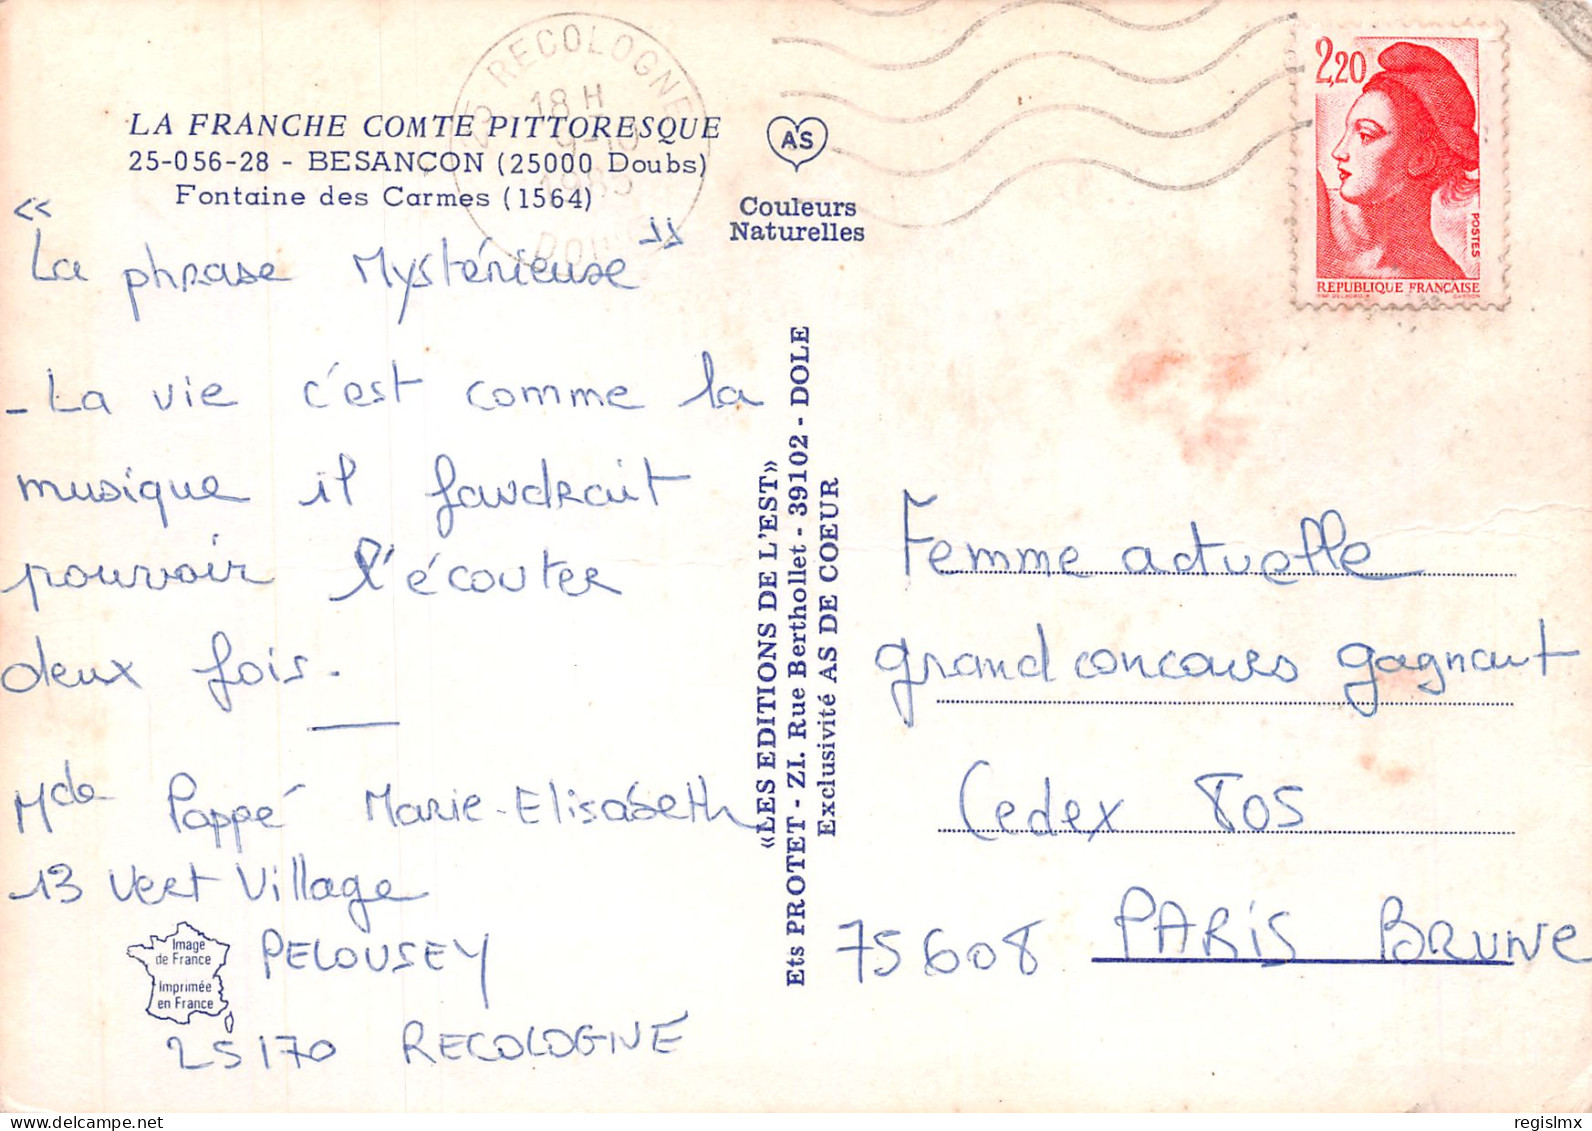 25 RECOLOGNE
18 H
9-10
1985
DOUBS
LA FRANCHE COMTE PITTORESQUE
25-056-28 - BESANÇON (25000 Doubs)
Fontaine des Carmes (1564)
AS
Couleurs
Naturelles
2,20
POSTES
REPUBLIQUE FRANÇAISE
«
La phrase Mystérieuse »
- La vie c'est comme la
musique il faudrait
pouvoir l'écouter
deux fois.
Mde Pappé Marie-Elisabeth
13 Vert Village
PELOUSEY
25170 RECOLOGNE
Image
de France
Imprimée
en France
«LES EDITIONS DE L'EST»
Ets PROTET - ZI. Rue Berthollet - 39102 - DOLE
Exclusivité AS DE COEUR
Femme actuelle
grand concours gagnant
Cedex 805
75608 PARIS BRUNE
delcampe.net
regislmx